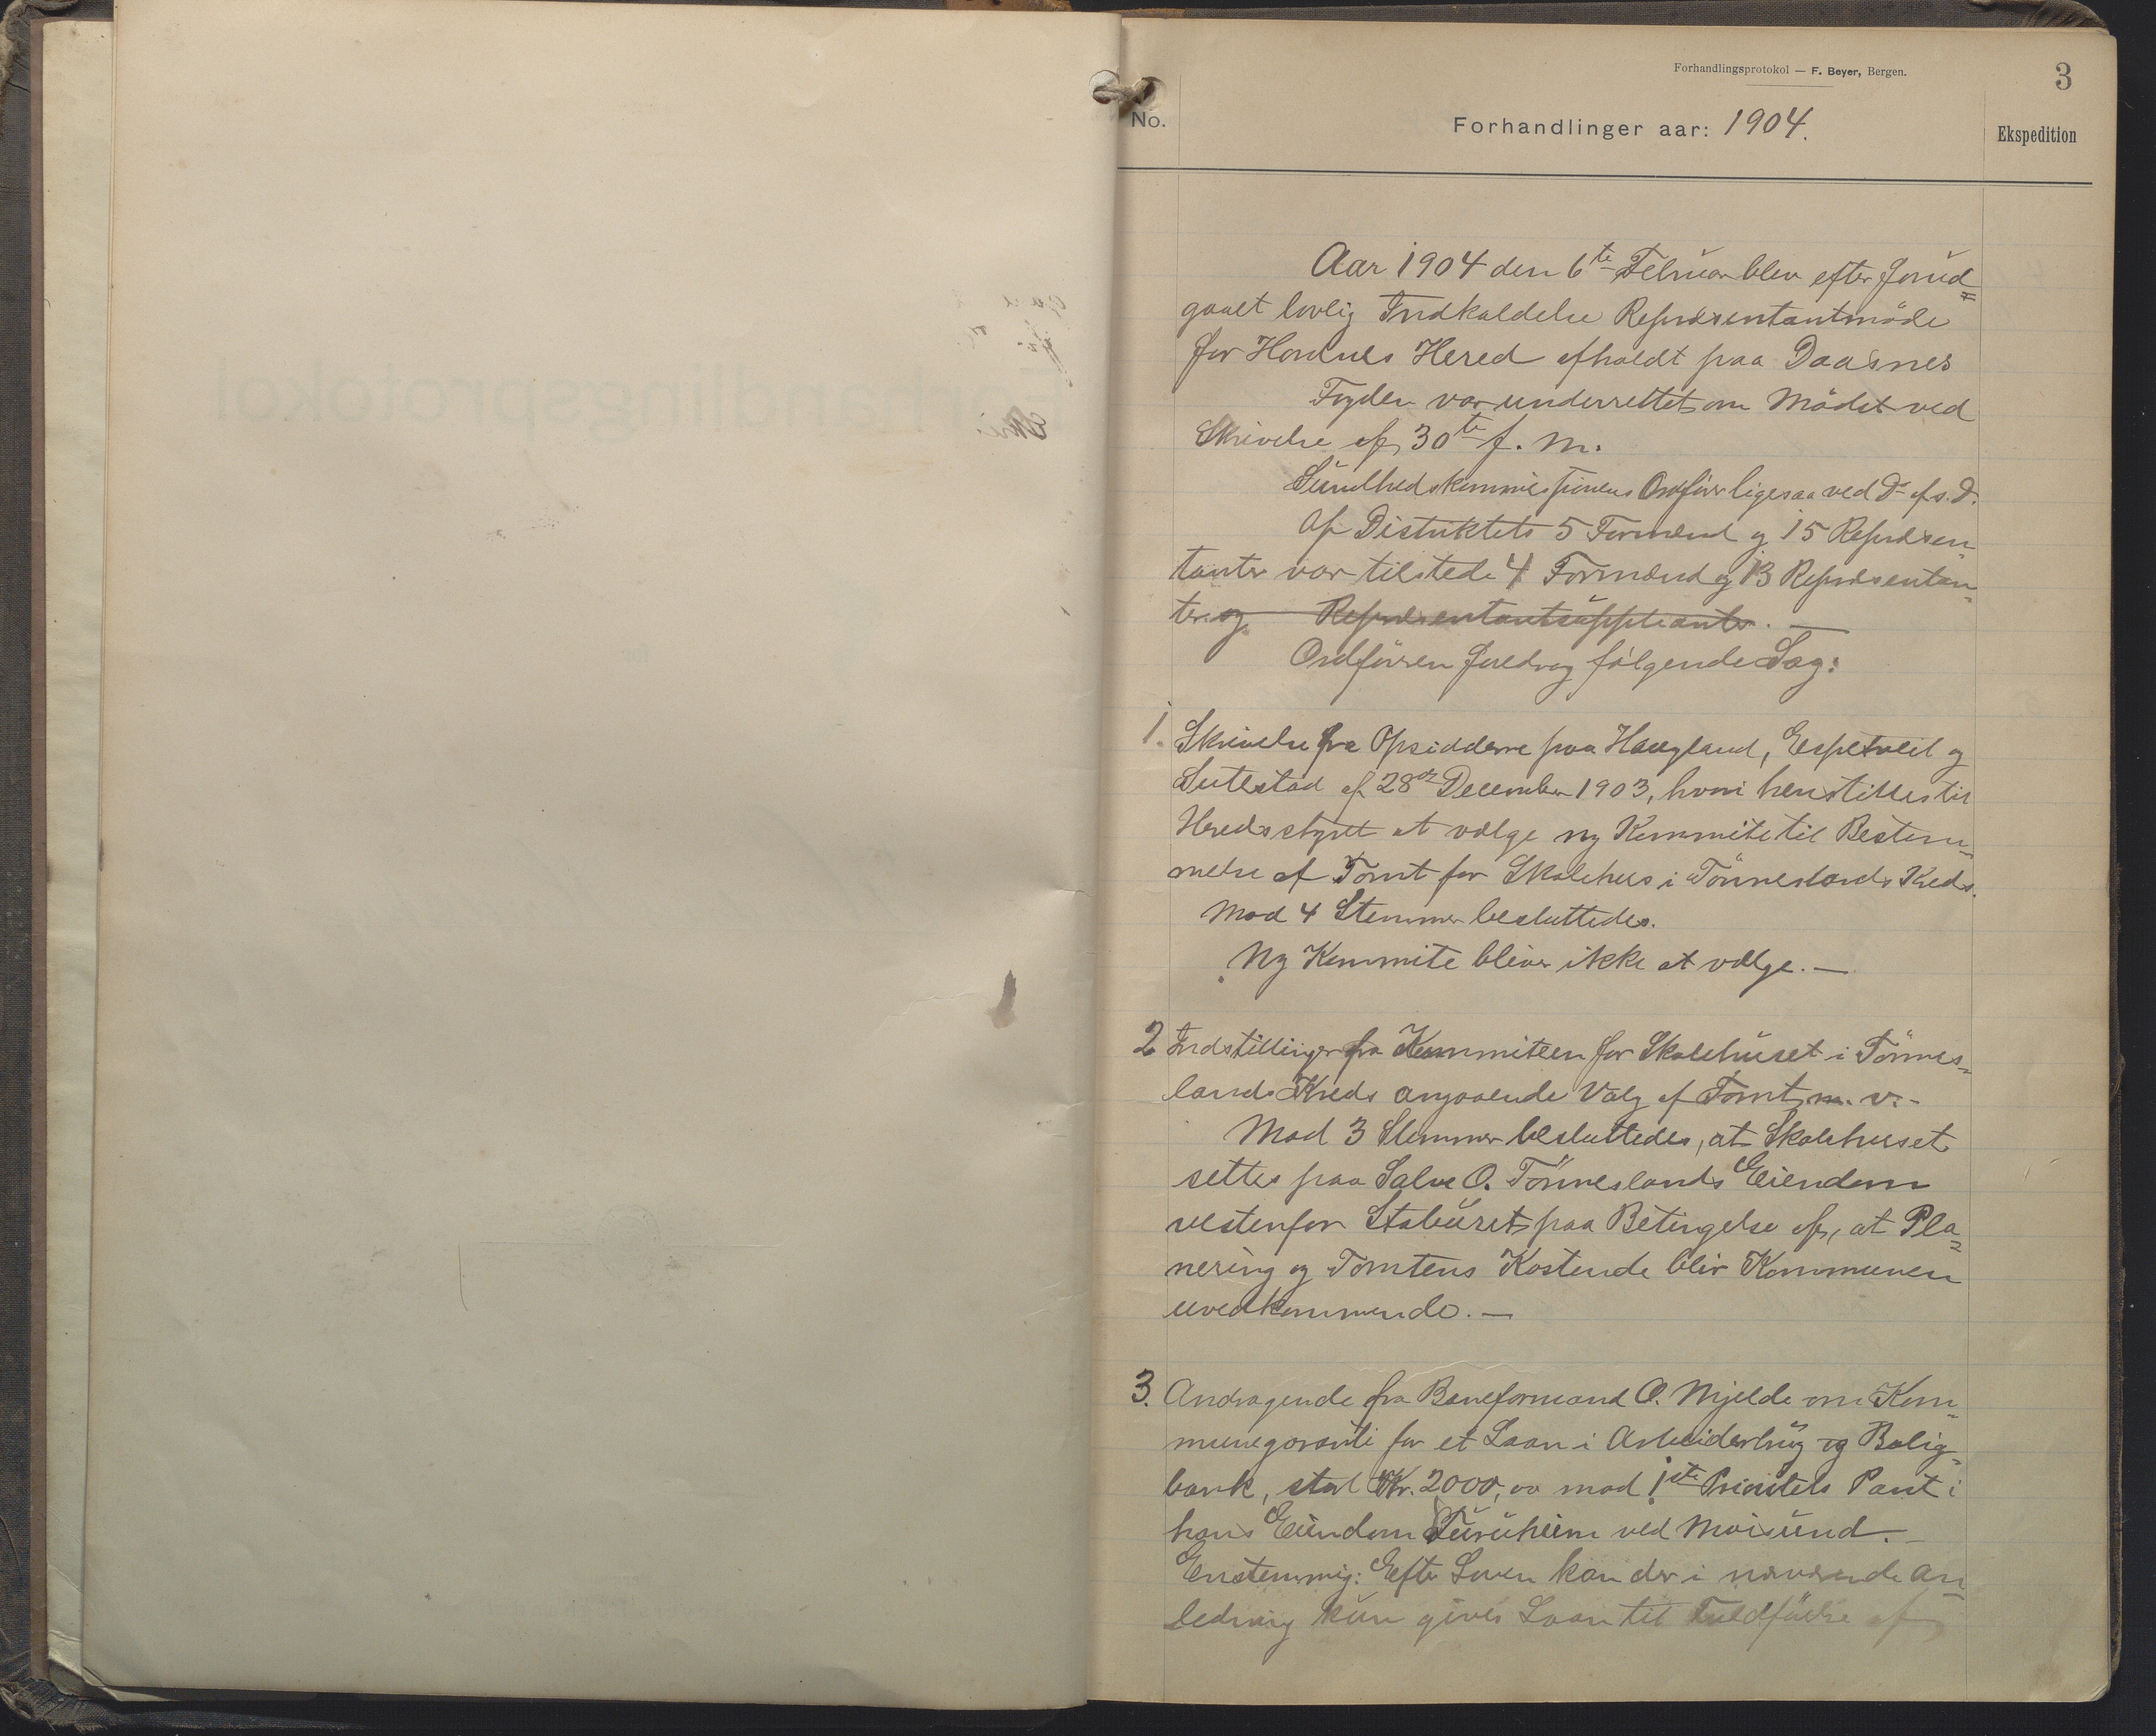 Forhandlingsprotokol — F. Beyer, Bergen.
3
No.
Forhandlinger aar: 1904.
Ekspedition
Aar 1904 den 6te Februar blev efter forud=
gaaet lovlig Indkaldelse Repræsentantmöde
for Hornnes Hered afholdt paa Daasnes
Fogden var underrettet om Mödet ved
Skrivelse af 30te f. M.
Sundhedskommissionens Ordförer ligesaa ved Do af s. D.
Af Distriktets 5 Formænd og 15 Repræsen-
tanter var tilstede 4 Formænd og 13 Repræsentan-
ter og Repræsentantsuppleanter. —
Ordföreren foredrog fölgende Sag:
1. Skrivelse fra Opsidderne paa Haugland, Espetveit og
Sutestad af 28de December 1903, hvori henstilles til
Heredsstyret at vælge ny Kommite til Bestem-
melse af Tomt for Skolehus i Tönneslands Kreds.
Mod 4 Stemmer besluttedes.
Ny Kommite bliver ikke at vælge. —
2 Indstillinger fra Kommiteen for Skolehuset i Tönnes-
lands Kreds angaaende Valg af Tomt m. v. -
Mod 3 Stemmer besluttedes, at Skolehuset
settes paa Salve O. Tönneslands Eiendom
vestenfor Stabüret paa Betingelse af, at Pla-
nering og Tomtens Kostende blir Kommunen
uvedkommende. —
3. Andragende fra Baneformand O. Mjelde om Kom-
munegaranti for et Laan i Arbeiderbrug og Bolig-
bank, stor Kr. 2000,00 mod 1ste Prioritets Pant i
hans Eiendom Furuheim ved Moisund. -
Enstemmig: Efter Loven kan der i nærværende An-
ledning kun gives Laan til Fuldförelse af